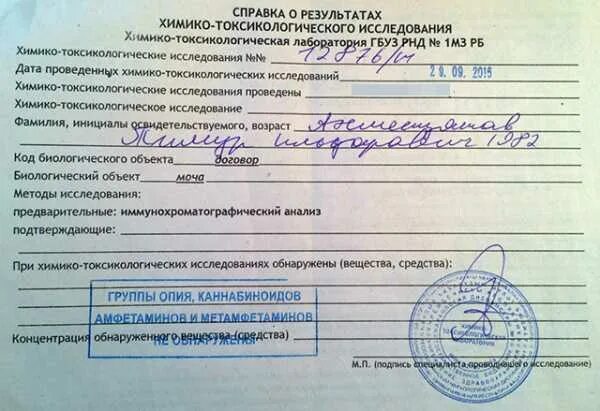 СПРАВКА О РЕЗУЛЬТАТАХ
ХИМИКО-ТОКСИКОЛОГИЧЕСКОГО ИССЛЕДОВАНИЯ
Химико-токсикологическая лаборатория ГБУЗ РНД № 1МЗ РБ
Химико-токсикологические исследования №№ 12876/м
Дата проведенных химико-токсикологических исследований 29.09.2015
Химико-токсикологические исследования проведены
Химико-токсикологическое исследование
Фамилия, инициалы освидетельствуемого, возраст
Тимур Ильдарович 1982
Код биологического объекта договор
Биологический объект моча
Методы исследования:
предварительные: иммунохроматографический анализ
подтверждающие:
При химико-токсикологических исследованиях обнаружены (вещества, средства):
ГРУППЫ ОПИЯ, КАННАБИНОИДОВ
АМФЕТАМИНОВ И МЕТАМФЕТАМИНОВ
НЕ ОБНАРУЖЕНЫ
Концентрация обнаруженного вещества (средства)
ХИМИКО-ТОКСИКОЛОГИЧЕСКАЯ ЛАБОРАТОРИЯ
М.П. (подпись специалиста проводившего исследование)